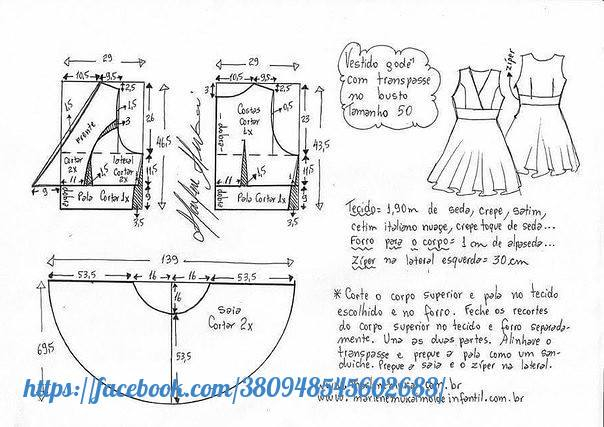 Vestido godê
com transpasse
no busto
Tamanho 50
zíper
29
10,5
9,5
2,5
1,5
1,5
3
Frente
26
46,5
cortar
2x
lateral
Cortar
2x
1,5
11,5
11
dobra
Pala Cortar 1x
9
9
3,5
29
10,5
9,5
3
2,5
Costas
Cortar
1x
0,5
23
43,5
dobra
1,5
11,5
11
dobra
Pala Cortar 1x
9
3,5
Tecido= 1,90m de seda, crepe, satim,
cetim italiano nuage, crepe toque de seda...
Forro para o corpo= 1 cm de alpaseda...
Zíper na lateral esquerda= 30cm
139
53,5
16
16
53,5
16
saia
Cortar 2x
69,5
53,5
* Corte o corpo superior e pala no tecido
escolhido e no forro. Feche os recortes
do corpo superior no tecido e forro separada-
mente. Una as duas partes. Alinhave o
transpasse e pregue a pala como um san-
duíche. Pregue a saia e o zíper na lateral.
https://facebook.com/380948545602685
.com.br
www.marlenemukaimoldeinfantil.com.br